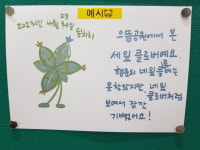 예시
29
2025년 4월 24일 
으뜸공원에서 본
세잎 클로버예요.
행운의 네잎클로버는
못찾았지만 네잎
클로버처럼
보여서 잠깐
기뻤어요!